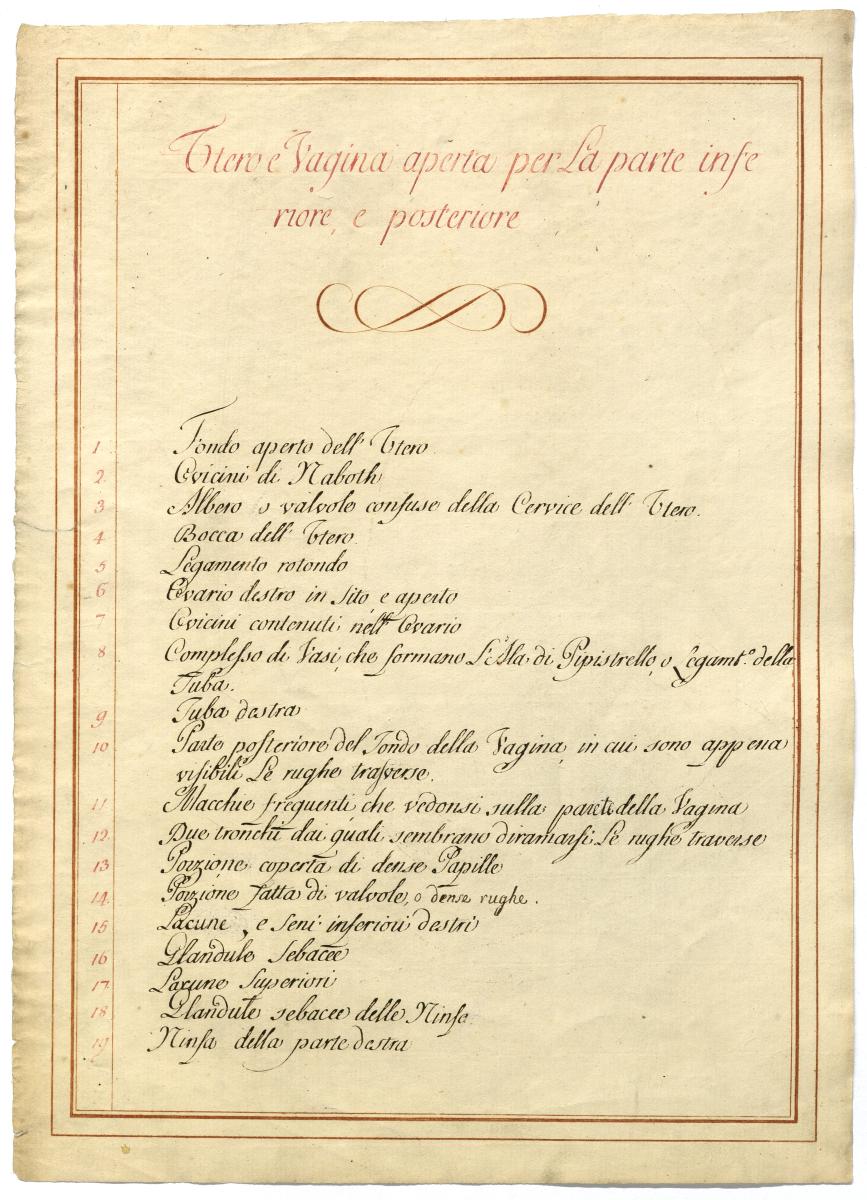 Utero e Vagina aperta per La parte infe
riore, e posteriore
1 Fondo aperto dell' Utero
2 Ovicini di Naboth
3 Albero o valvole confuse della Cervice dell' Utero.
4 Bocca dell' Utero.
5 Legamento rotondo
6 Ovario destro in sito e aperto
7 Ovicini contenuti nell' Ovario
8 Complesso di Vasi, che formano L'Ala di Pipistrello, o Legamt.º della
Tuba.
9 Tuba destra
10 Parte posteriore del Fondo della Vagina, in cui sono appena
visibili Le rughe trasverse.
11 Macchie frequenti che vedonsi sulla pareti della Vagina
12. Due tronchi dai quali sembrano diramarsi Le rughe traverse
13 Porzione coperta di dense Papille
14. Porzione fatta di valvole, o dense rughe.
15 Lacune, e seni inferiori destri
16 Glandule sebacee
17. Lacune Superiori
18 Glandule sebacee delle Ninfe
19 Ninfa della parte destra